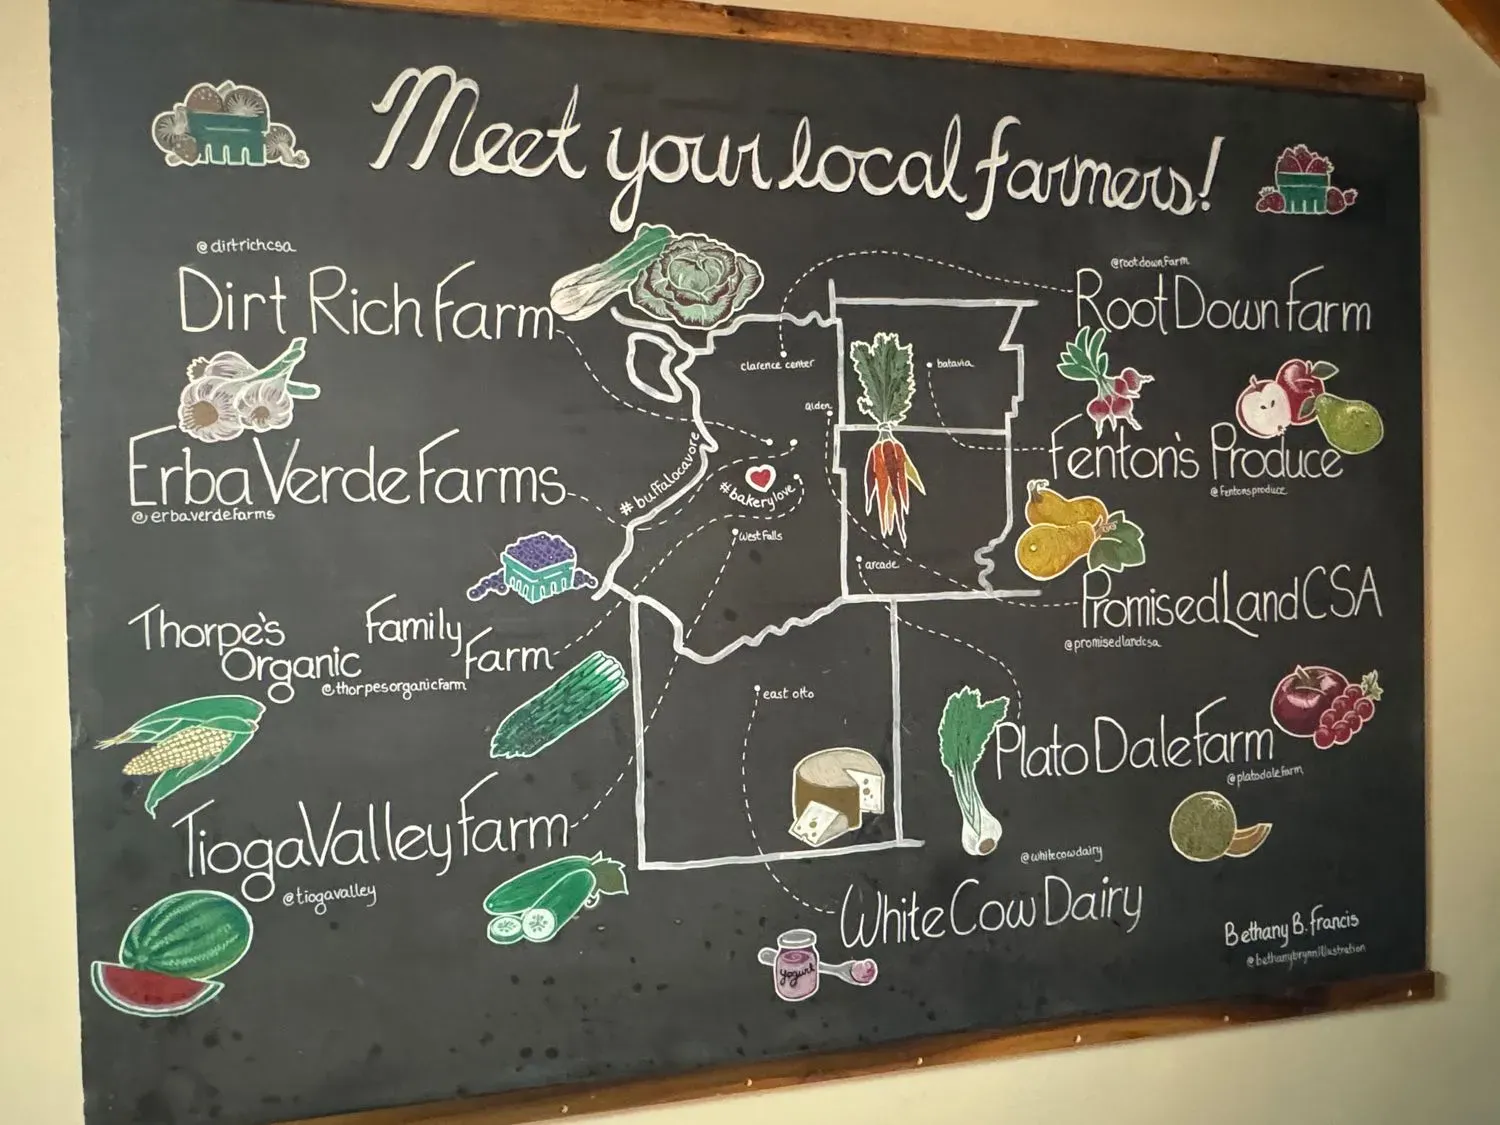 Meet your local farmers!
@dirtrichcsa
Dirt Rich Farm
@rootdownfarm
Root Down Farm
clarence center
batavia
alden
Erba Verde Farms
@erbaverdefarms
Fenton's Produce
@fentonsproduce
#buffalocavore
#bakerylove
West Falls
arcade
Thorpe's Family
Organic Farm
@thorpesorganicfarm
Promised Land CSA
@promisedlandcsa
east otto
Plato Dale Farm
@platodalefarm
Tioga Valley Farm
@tiogavalley
@whitecowdairy
White Cow Dairy
yogurt
Bethany B. Francis
@bethanybrynnillustration